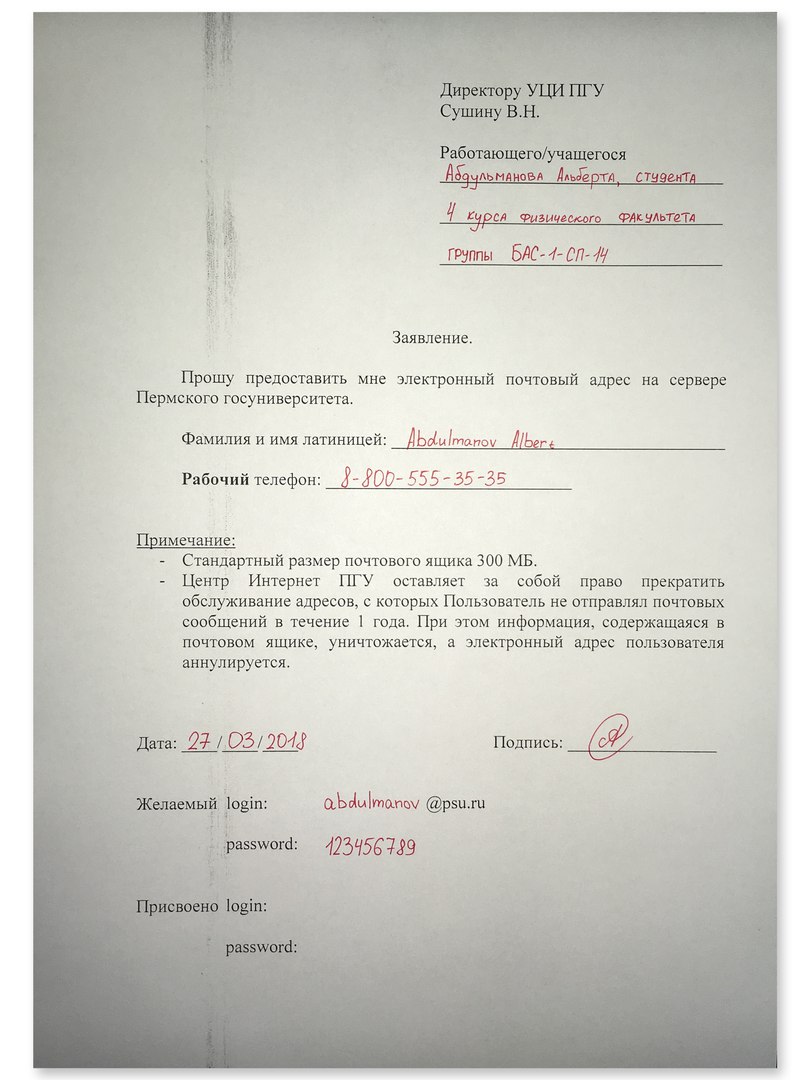 Директору УЦИ ПГУ
Сушину В.Н.
Работающего/учащегося
Абдульманова Альберта, студента
4 курса физического факультета
группы БАС-1-СП-14
Заявление.
Прошу предоставить мне электронный почтовый адрес на сервере
Пермского госуниверситета.
Фамилия и имя латиницей: Abdulmanov Albert
Рабочий телефон: 8-800-555-35-35
Примечание:
- Стандартный размер почтового ящика 300 МБ.
- Центр Интернет ПГУ оставляет за собой право прекратить
обслуживание адресов, с которых Пользователь не отправлял почтовых
сообщений в течение 1 года. При этом информация, содержащаяся в
почтовом ящике, уничтожается, а электронный адрес пользователя
аннулируется.
Дата: 27/03/2018 Подпись:
Желаемый login: abdulmanov @psu.ru
password: 123456789
Присвоено login:
password: